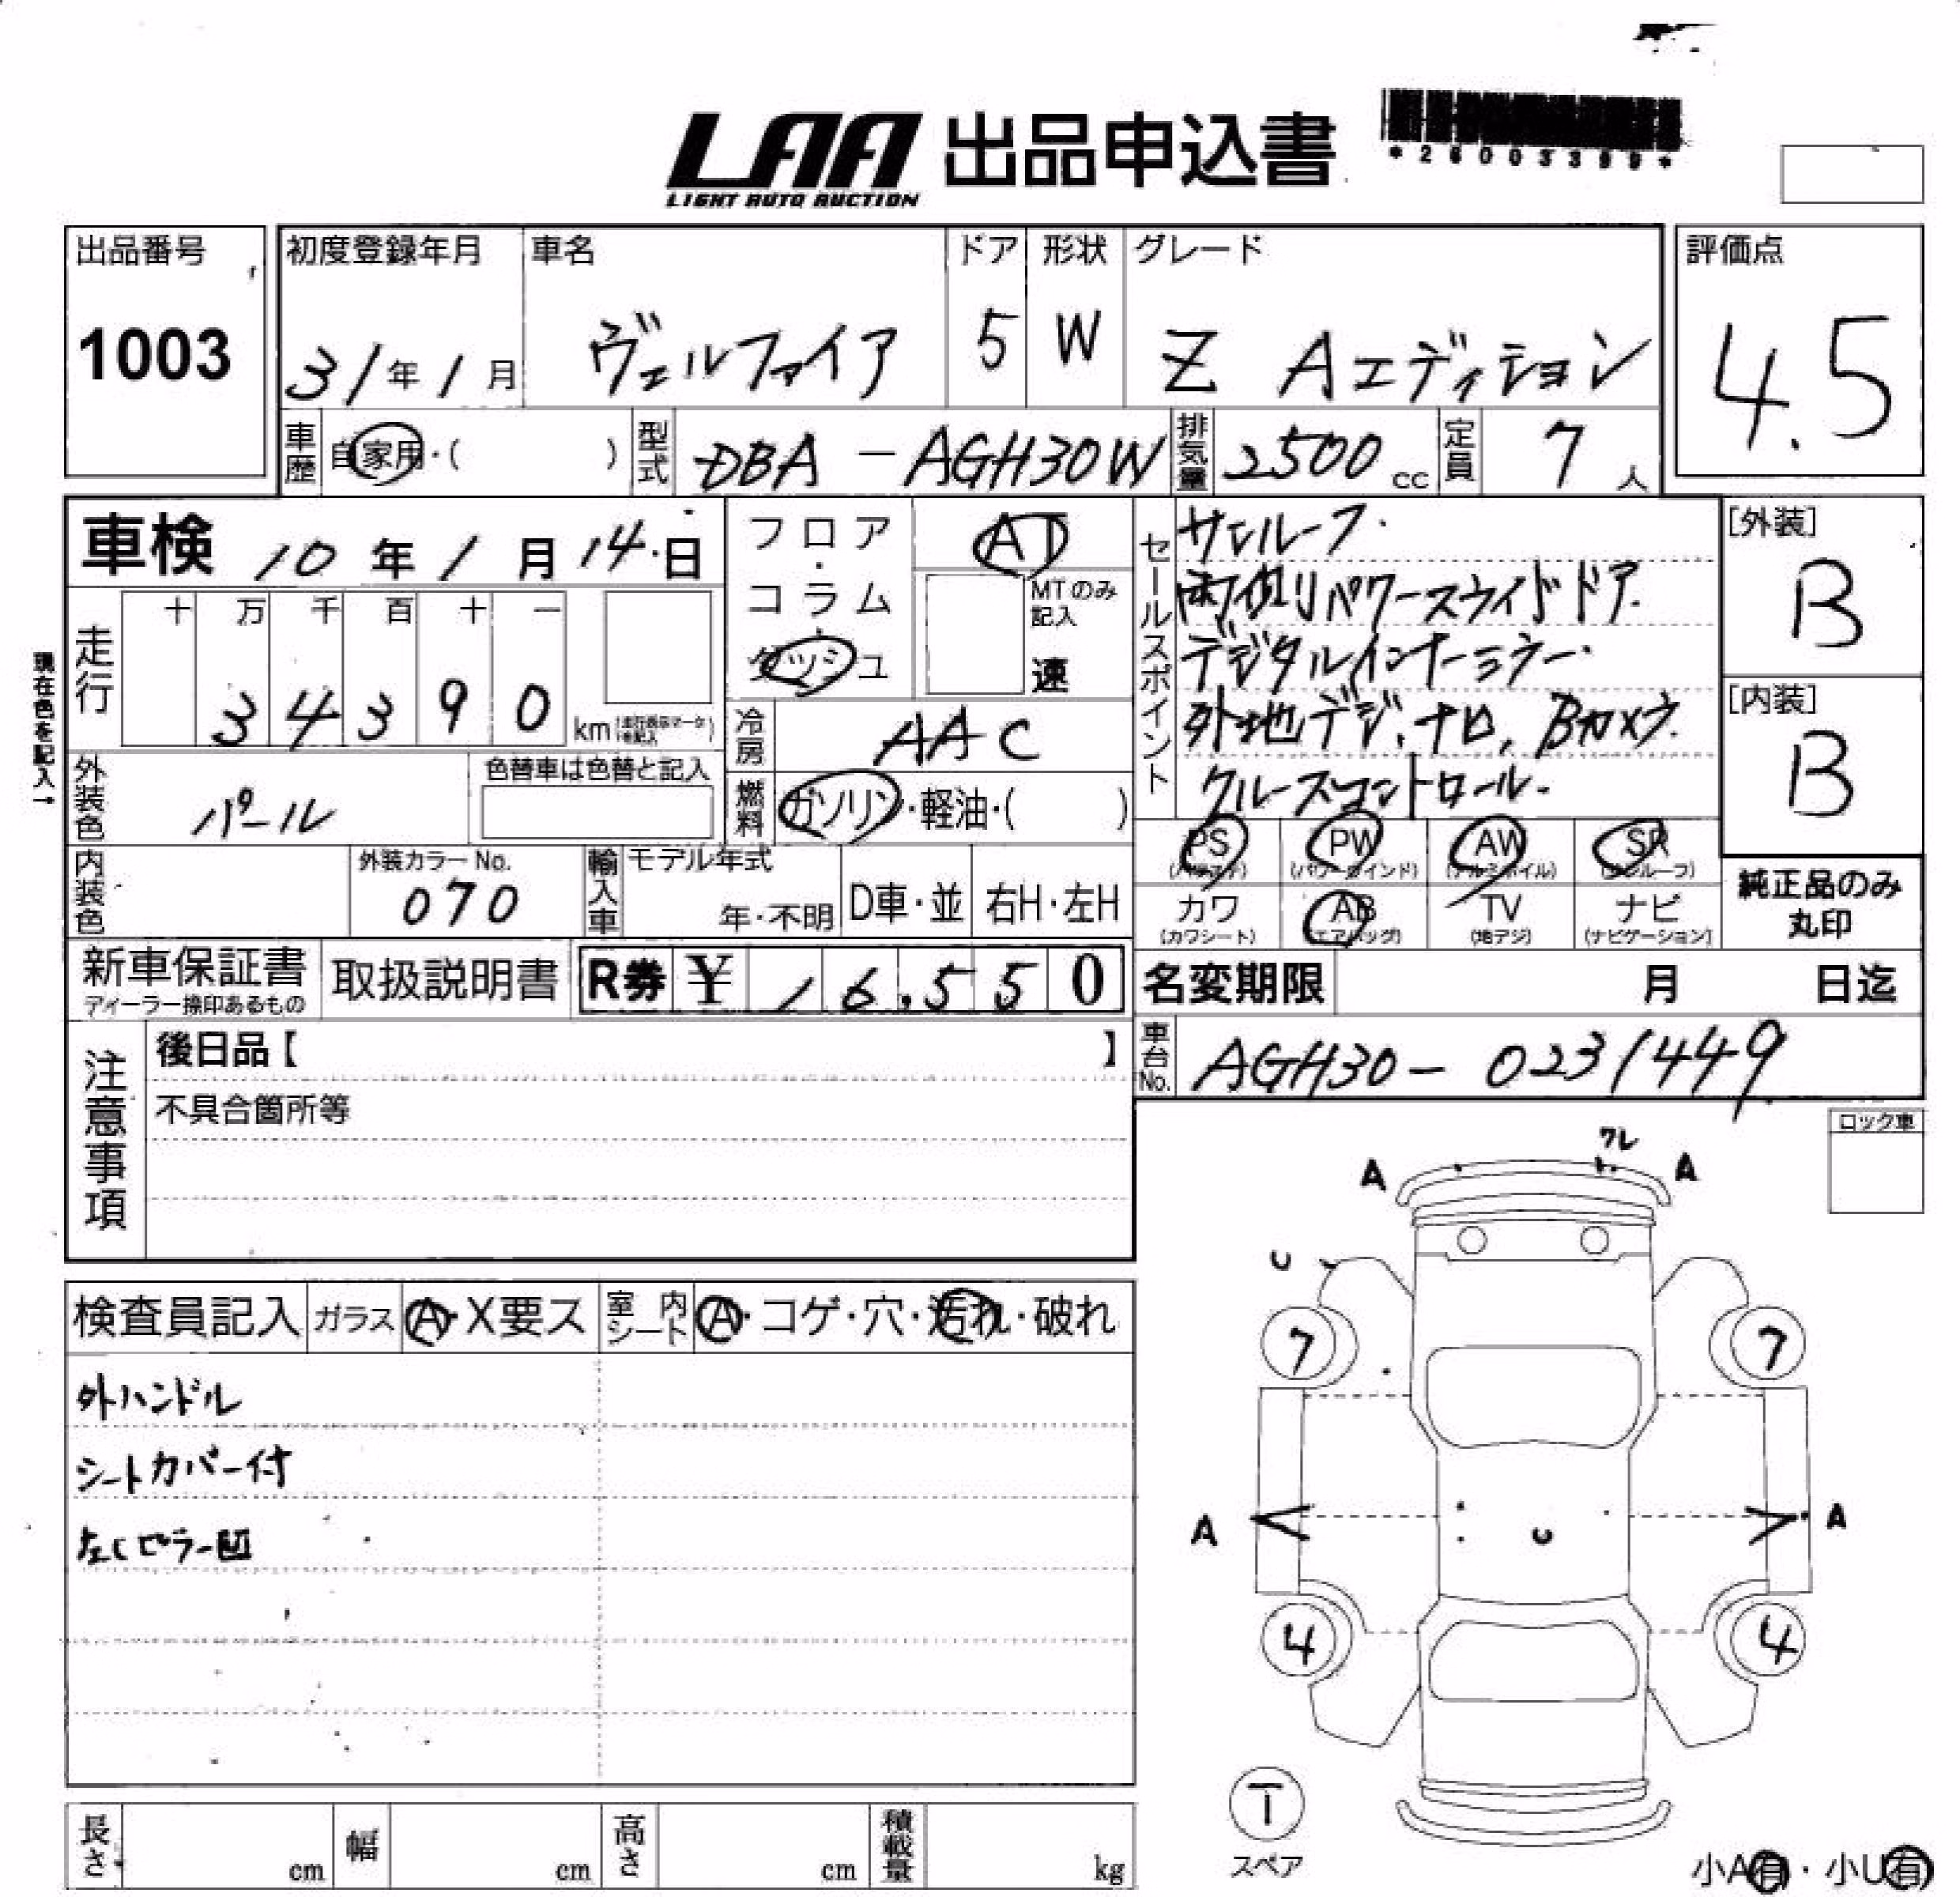 LAA 出品申込書
LIGHT AUTO AUCTION
*26003399*
出品番号 初度登録年月 車名 ドア 形状 グレード 評価点
1003 31年1月 ヴェルファイア 5 W Z Aエディション 4.5
車歴 自家用・( ) 型式 DBA-AGH30W 排気量 2500 cc 定員 7人
車検 10年1月14日
フロア・コラム・ダッシュ
AT
MTのみ記入
速
セールスポイント
サンルーフ.
両側パワースライドドア.
デジタルインナーミラー.
外地デジ、ナビ, Bカメラ.
クルーズコントロール.
[外装]
B
[内装]
B
現在色を記入→
走行 十 万 千 百 十 一
34390 km
冷房 AAC
外装色 パール 色替車は色替と記入
燃料 ガソリン・軽油・( )
内装色 外装カラーNo. 070
輸入車 モデル年式 年・不明 D車・並 右H・左H
PS PW AW SR
(パワステ) (パワーウインド) (アルミホイル) (サンルーフ)
カワ AB TV ナビ
(カワシート) (エアバッグ) (地デジ) (ナビゲーション)
純正品のみ
丸印
新車保証書 取扱説明書 R券 ¥ 16,550
ディーラー捺印あるもの
名変期限 月 日迄
車台No. AGH30-0231449
注意事項
後日品【 】
不具合箇所等
ロック車
ワレ
A A
U
7 7
A U A
4 4
T
スペア
小A有・小U有
検査員記入 ガラス A・X要ス 室内シート A・コゲ・穴・汚れ・破れ
外ハンドル
シートカバー付
左Cピラー凹
長さ cm 幅 cm 高さ cm 積載量 kg